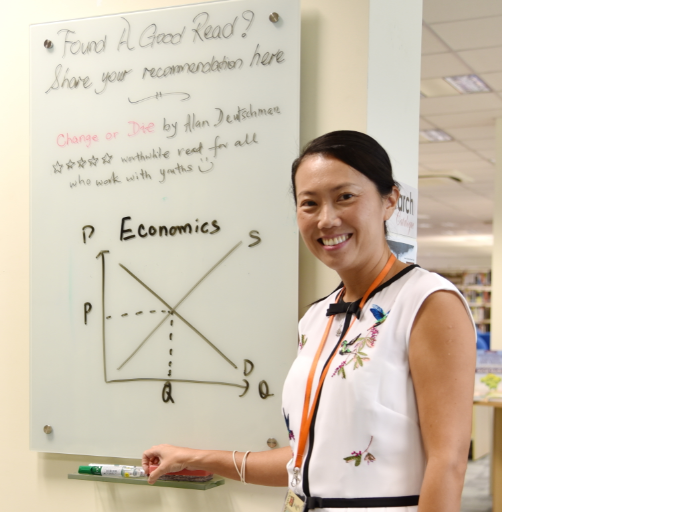 Found A Good Read?
Share your recommendation here
Change or Die by Alan Deutschman
☆☆☆☆☆ worthwhile read for all
who work with youths
P Economics S
P
D
Q Q
arch